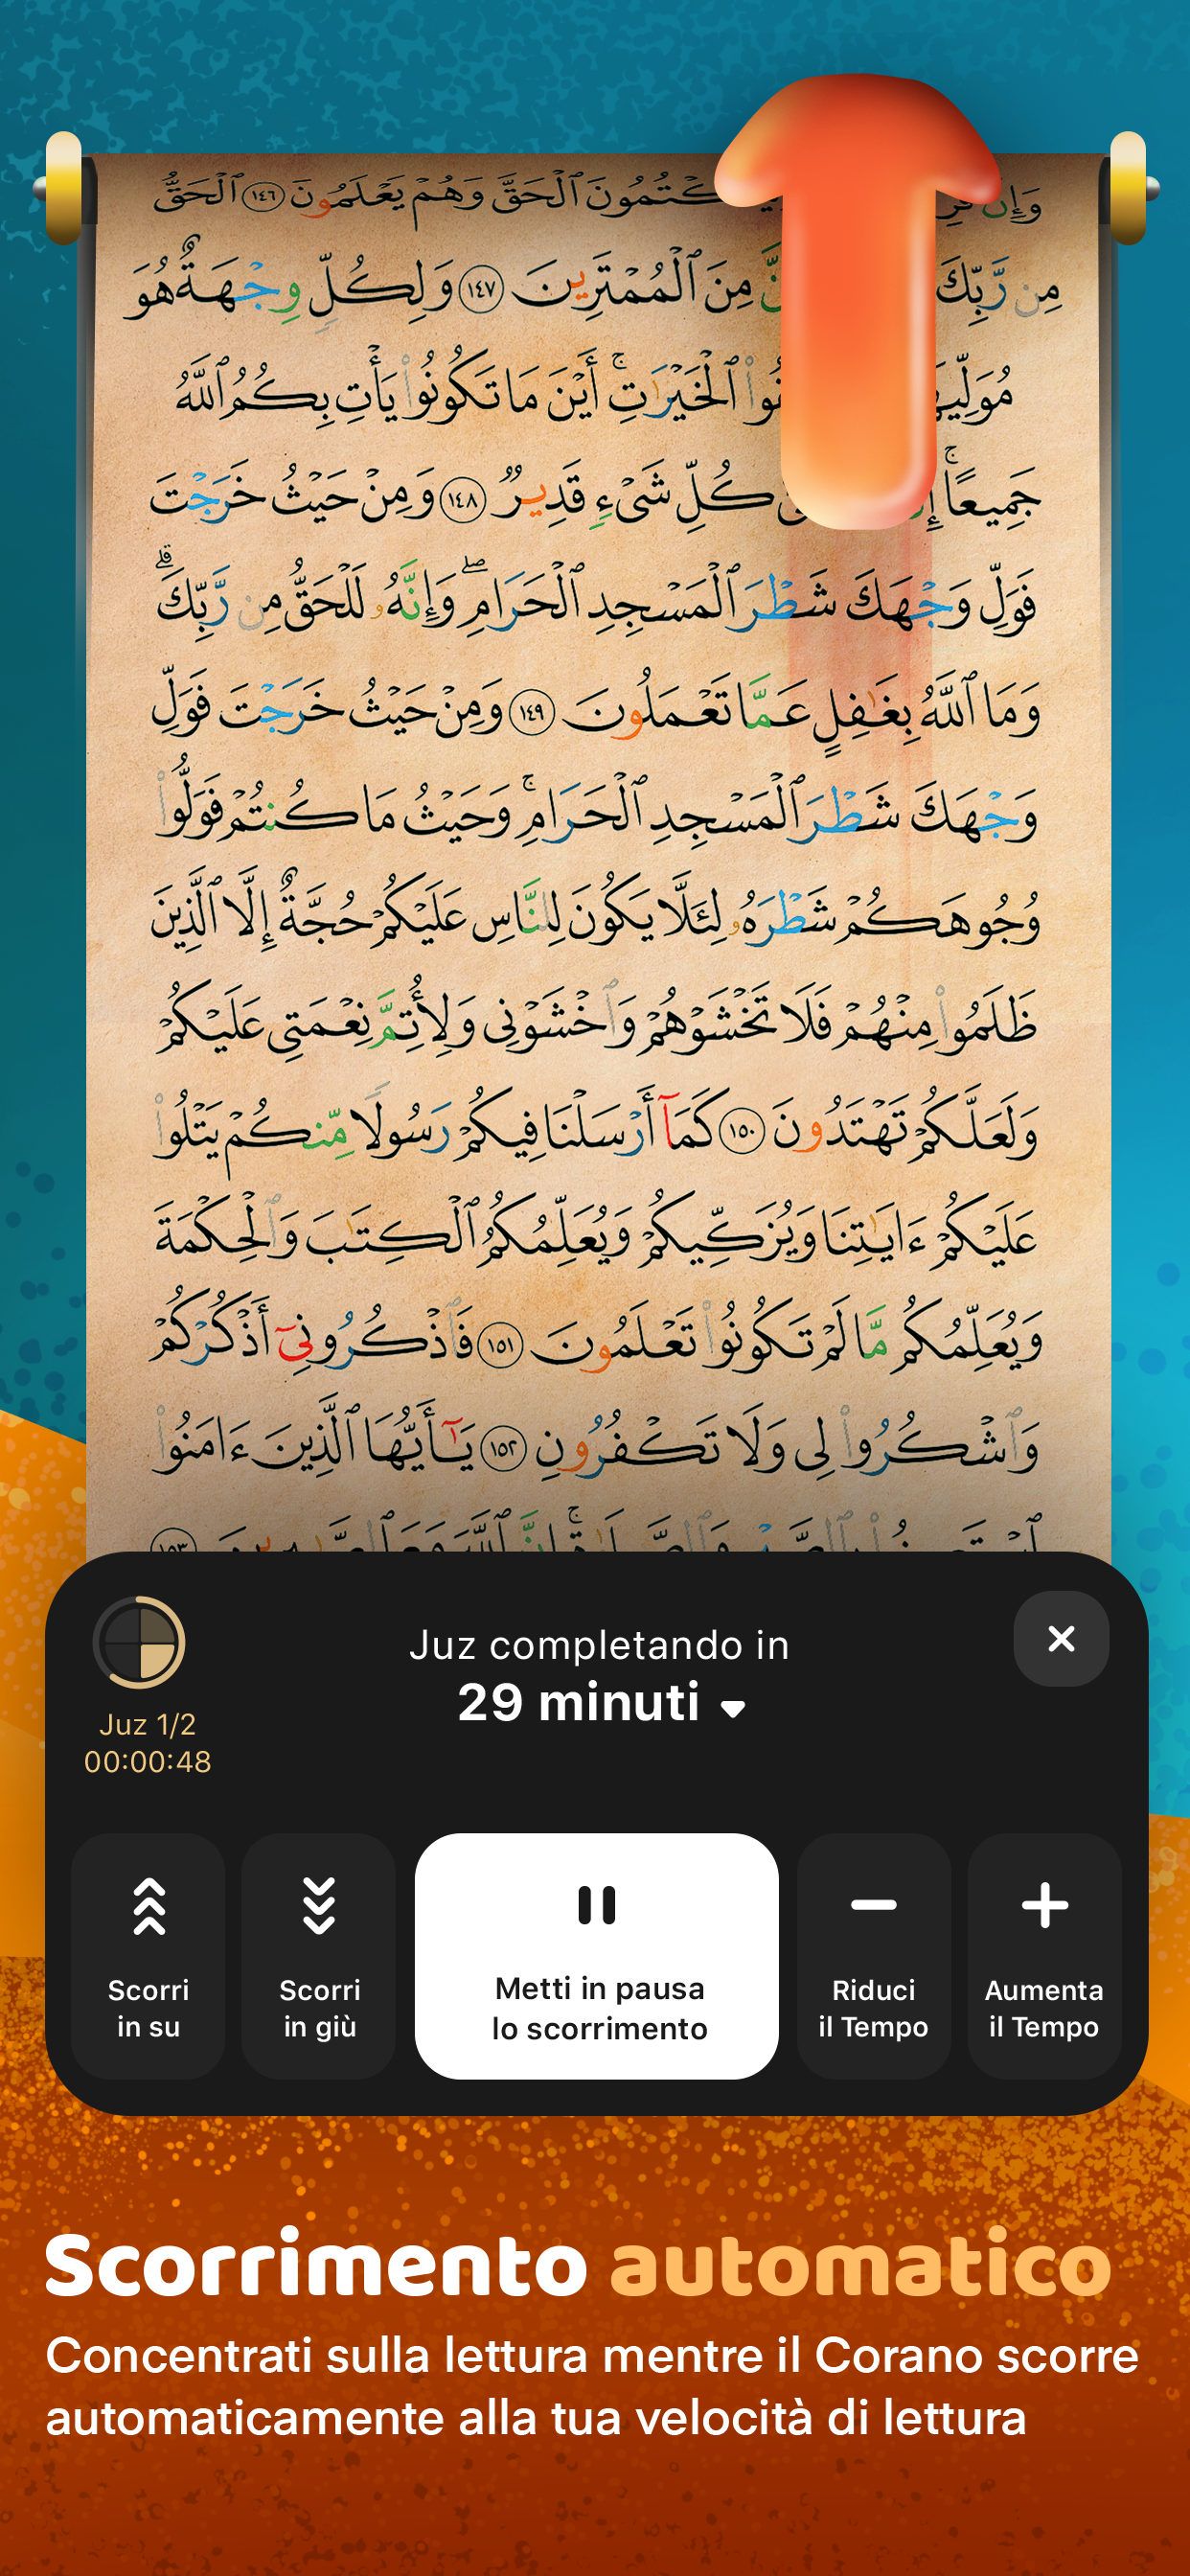 وَإِن ڪۡتُمُونَ ٱلۡحَقَّ وَهُمۡ يَعۡلَمُونَ ١٤٦ ٱلۡحَقُّ
مِن رَّبِّكَ مِنَ ٱلۡمُمۡتَرِينَ ١٤٧ وَلِكُلّٖ وِجۡهَةٌ هُوَ
ٱلۡخَيۡرَٰتِۚ أَيۡنَ مَا تَكُونُواْ يَأۡتِ بِكُمُ ٱللَّهُ
جَمِيعًاۚ كُلِّ شَيۡءٖ قَدِيرٞ ١٤٨ وَمِنۡ حَيۡثُ خَرَجۡتَ
فَوَلِّ وَجۡهَكَ شَطۡرَ ٱلۡمَسۡجِدِ ٱلۡحَرَامِۖ وَإِنَّهُۥ لَلۡحَقُّ مِن رَّبِّكَۗ
وَمَا ٱللَّهُ بِغَٰفِلٍ عَمَّا تَعۡمَلُونَ ١٤٩ وَمِنۡ حَيۡثُ خَرَجۡتَ فَوَلِّ
وَجۡهَكَ شَطۡرَ ٱلۡمَسۡجِدِ ٱلۡحَرَامِۚ وَحَيۡثُ مَا كُنتُمۡ فَوَلُّواْ
وُجُوهَكُمۡ شَطۡرَهُۥ لِئَلَّا يَكُونَ لِلنَّاسِ عَلَيۡكُمۡ حُجَّةٌ إِلَّا ٱلَّذِينَ
ظَلَمُواْ مِنۡهُمۡ فَلَا تَخۡشَوۡهُمۡ وَٱخۡشَوۡنِي وَلِأُتِمَّ نِعۡمَتِي عَلَيۡكُمۡ
وَلَعَلَّكُمۡ تَهۡتَدُونَ ١٥٠ كَمَآ أَرۡسَلۡنَا فِيكُمۡ رَسُولٗا مِّنكُمۡ يَتۡلُواْ
عَلَيۡكُمۡ ءَايَٰتِنَا وَيُزَكِّيكُمۡ وَيُعَلِّمُكُمُ ٱلۡكِتَٰبَ وَٱلۡحِكۡمَةَ
وَيُعَلِّمُكُم مَّا لَمۡ تَكُونُواْ تَعۡلَمُونَ ١٥١ فَٱذۡكُرُونِيٓ أَذۡكُرۡكُمۡ
وَٱشۡكُرُواْ لِي وَلَا تَكۡفُرُونِ ١٥٢ يَٰٓأَيُّهَا ٱلَّذِينَ ءَامَنُواْ
Juz completando in
29 minuti
Juz 1/2
00:00:48
Scorri
in su
Scorri
in giù
Metti in pausa
lo scorrimento
Riduci
il Tempo
Aumenta
il Tempo
Scorrimento automatico
Concentrati sulla lettura mentre il Corano scorre
automaticamente alla tua velocità di lettura